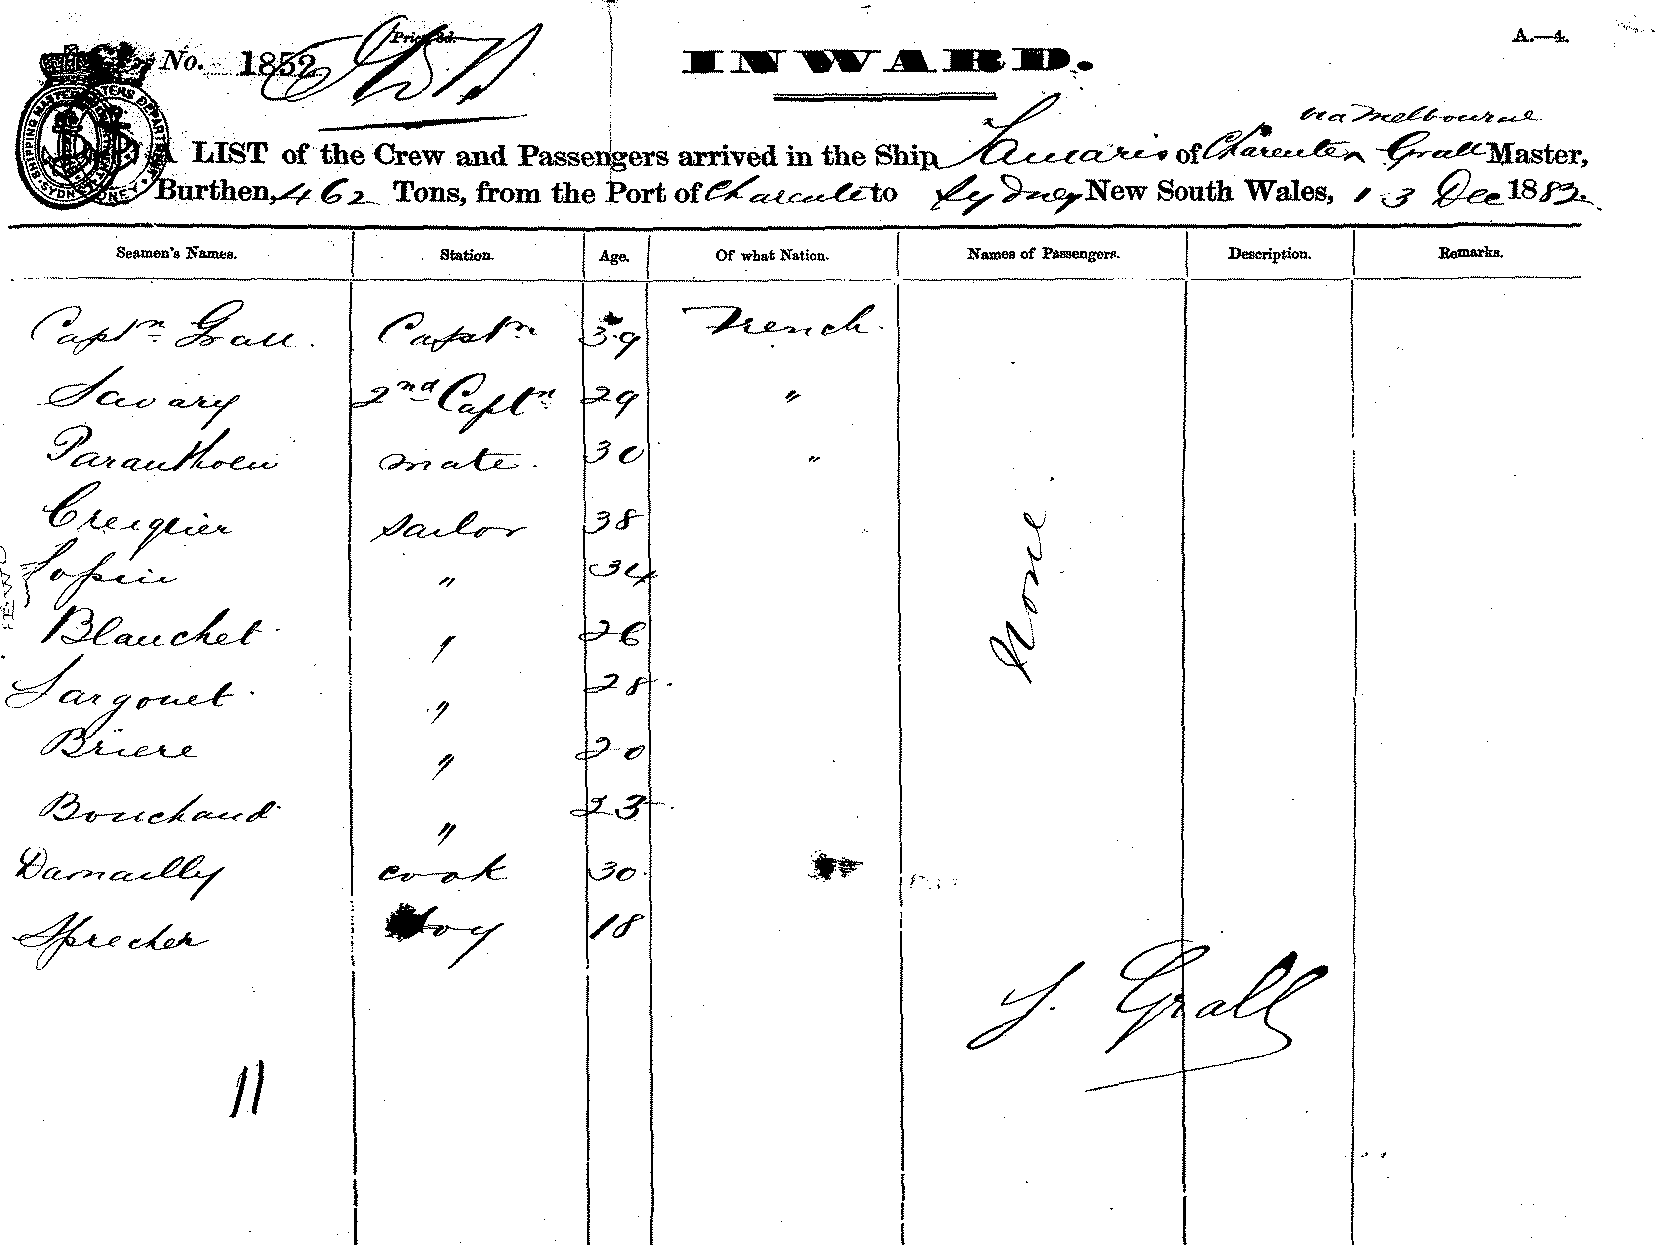 No. 1852
INWARD.
A.—4.
via Melbourne
A LIST of the Crew and Passengers arrived in the Ship Tamaris of Charente, Grall Master,
Burthen, 462 Tons, from the Port of Charente to Sydney New South Wales, 13 Dec 1882
Seamen's Names. Station. Age. Of what Nation. Names of Passengers. Description. Remarks.
Captn Grall. Captn 39 French.
Savary 2nd Captn 29 "
Paranthoen mate. 30 "
Creiquier sailor 38
" 34
Blanchet " 26
Largouet " 28
Briere " 20
Bouchaud " 23
Damailly cook 30
Sprecher boy 18
None.
Grall
11